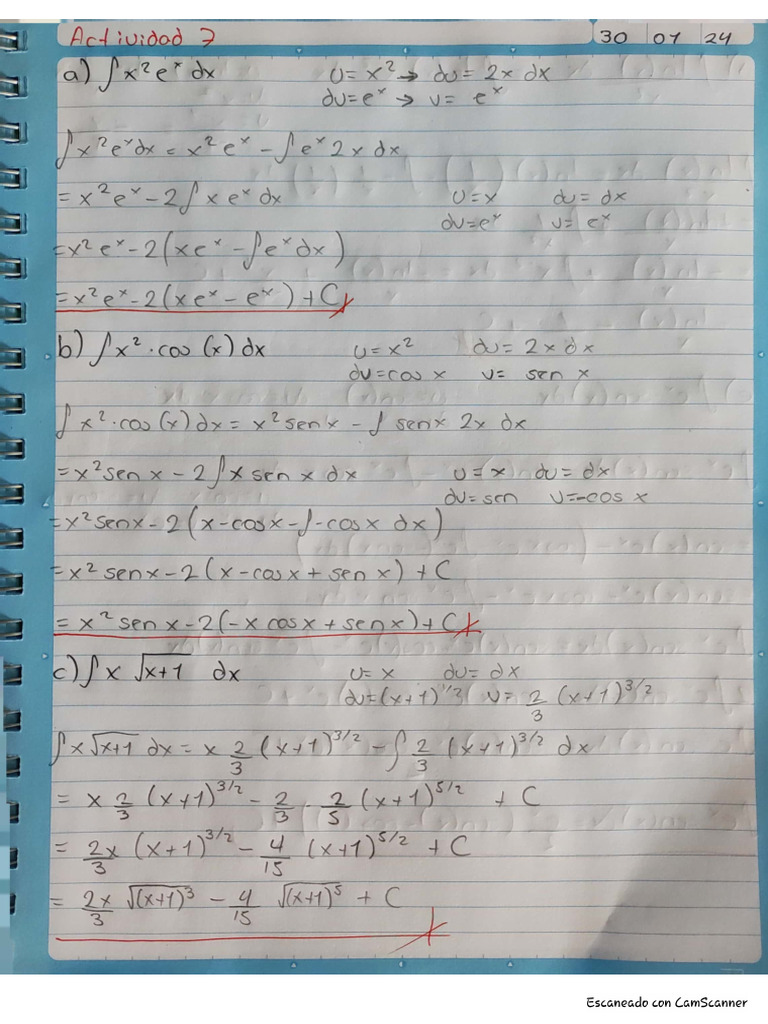 Actividad 7 30 07 24
a) ∫x²eˣ dx u = x² → du = 2x dx
dv=eˣ → v= eˣ
∫x²eˣdx = x²eˣ - ∫eˣ 2x dx
= x²eˣ - 2∫xeˣ dx u=x du = dx
dv=eˣ v= eˣ
=x²eˣ - 2(xeˣ - ∫eˣ dx)
= x²eˣ - 2(xeˣ - eˣ) + C
b) ∫x² · cos (x) dx u = x² du = 2x dx
dv=cos x v= sen x
∫x² · cos (x) dx = x² sen x - ∫ sen x 2x dx
= x² sen x - 2∫x sen x dx u = x du = dx
dv=sen v=-cos x
= x² sen x - 2(x-cos x - ∫-cos x dx)
= x² sen x - 2(x-cos x + sen x) + C
= x² sen x - 2(-x cos x + sen x) + C
c) ∫x √(x+1) dx u= x du= dx
dv=(x+1)^1/2 v= 2/3 (x+1)^3/2
∫x√(x+1) dx = x 2/3 (x+1)^3/2 - ∫ 2/3 (x+1)^3/2 dx
= x 2/3 (x+1)^3/2 - 2/3 · 2/5 (x+1)^5/2 + C
= 2x/3 (x+1)^3/2 - 4/15 (x+1)^5/2 + C
= 2x/3 √(x+1)³ - 4/15 √(x+1)⁵ + C
Escaneado con CamScanner